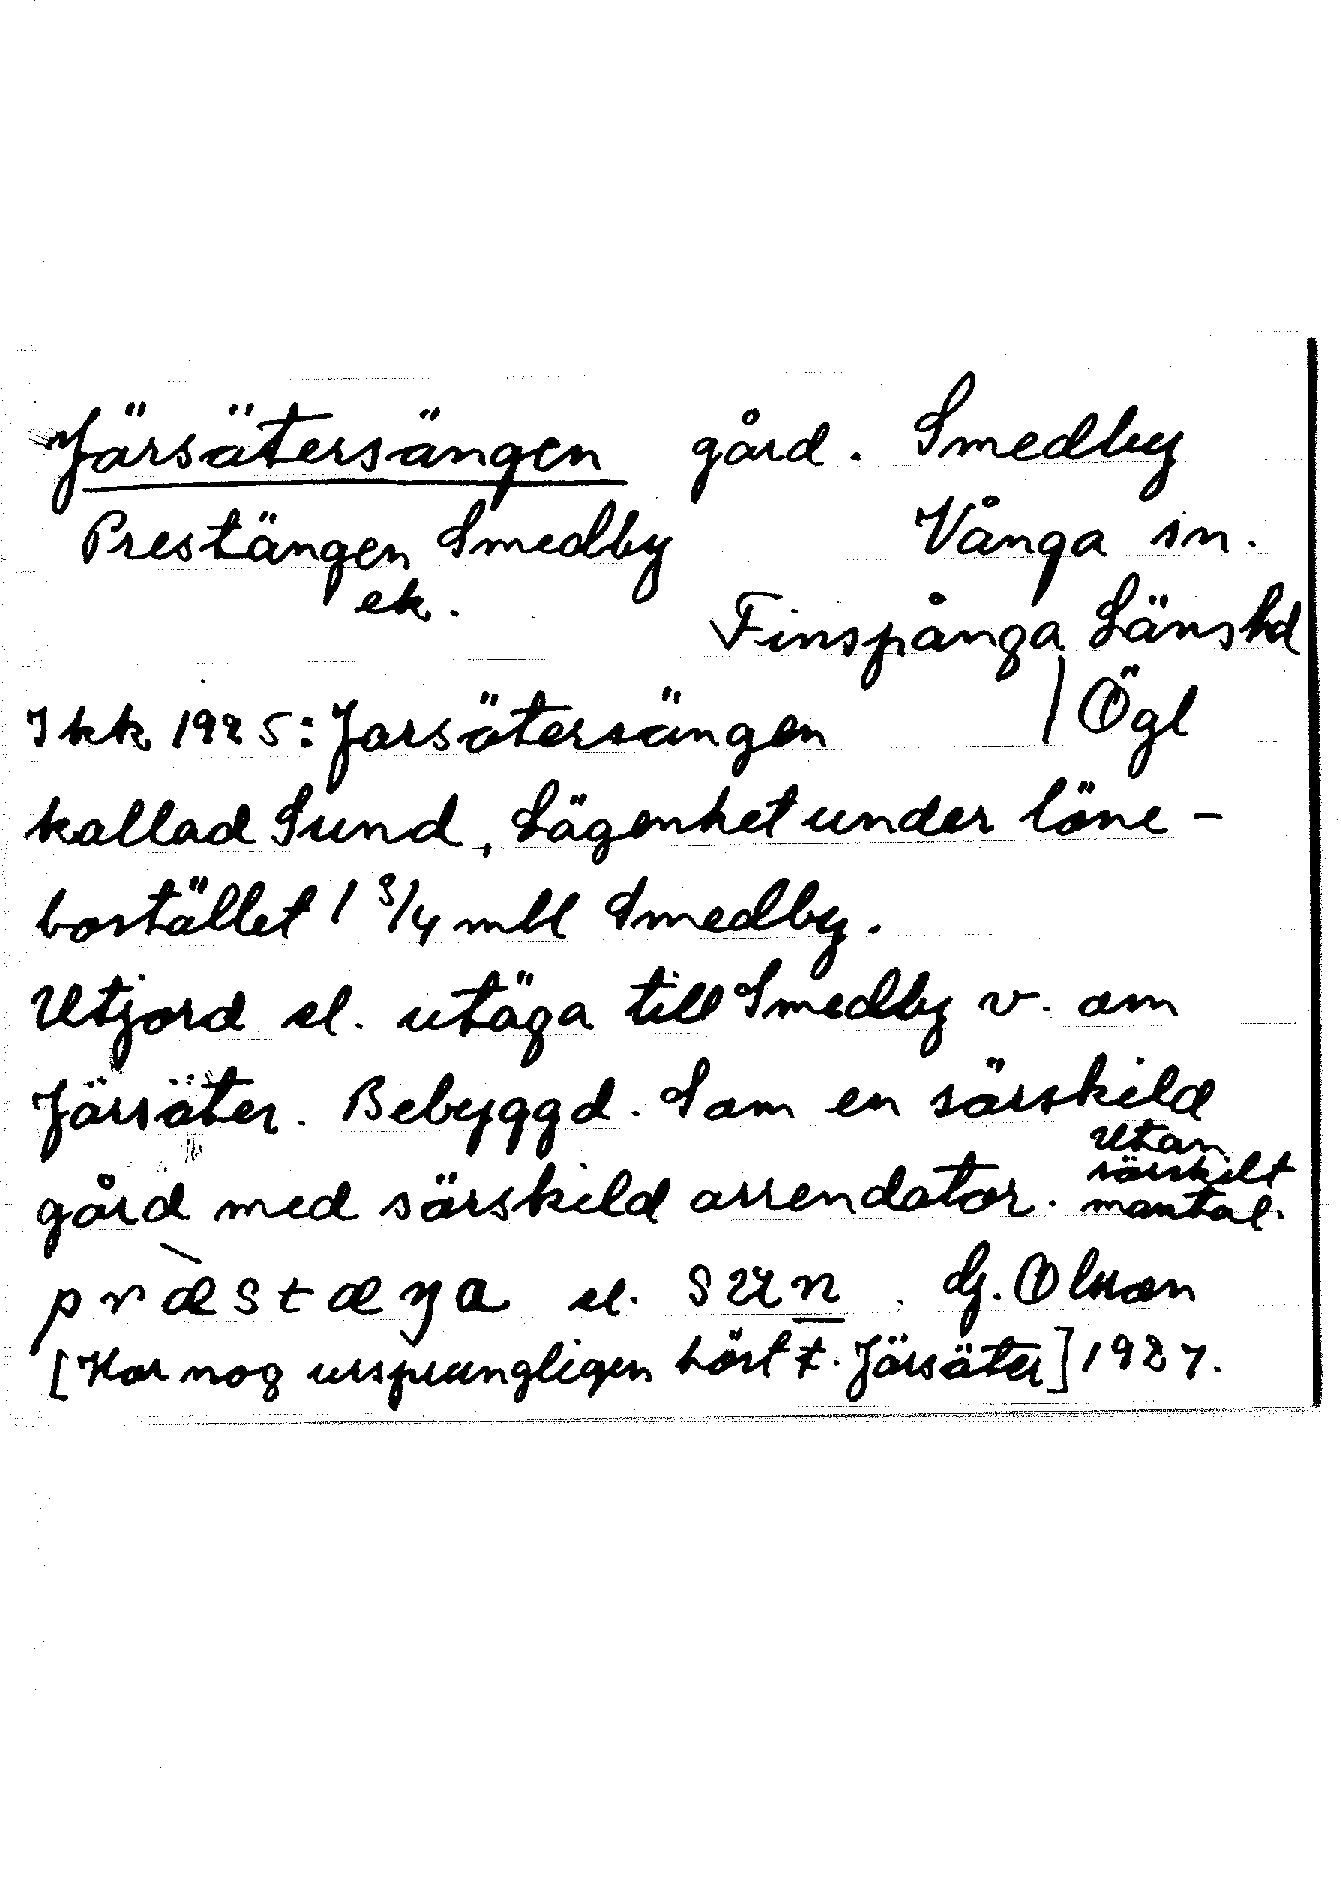 Järsätersängen gård. Smedby
Prestängen Smedby Vånga sn.
ek.
Finspånga Länshd
Ögl
Jkk 1925: Jarsätersängen
kallad Sund, Lägenhet under löne-
bostället 1 3/4 mtl Smedby.
Utjord el. utäga till Smedby v. om
Järsäter. Bebyggd. Som en särskild
gård med särskild arrendator. Utan
särskilt
mantal.
præstæŋa el. sun. Gj. Olsson
[Har nog ursprungligen hört t. Järsäter] 1927.